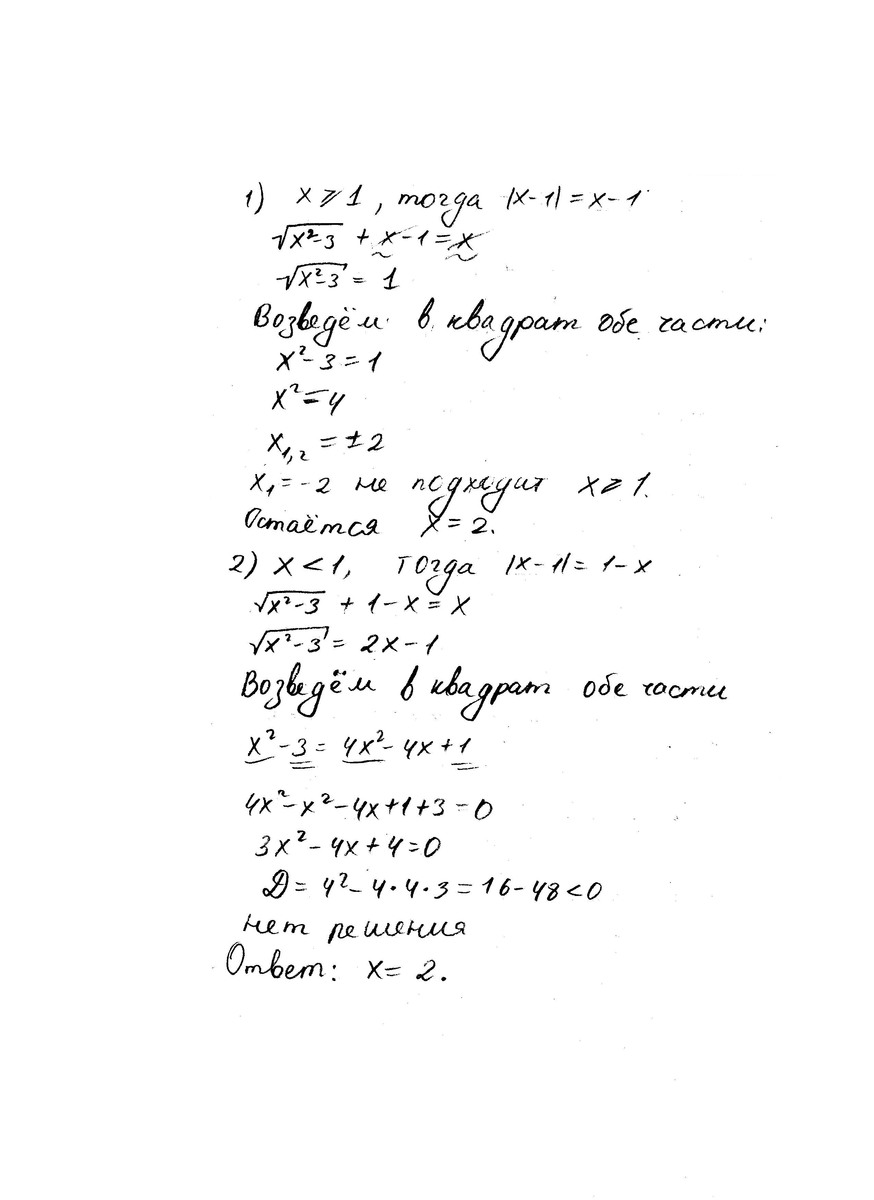 1) x ⩾ 1, тогда |x-1| = x-1
√(x²-3) + x-1 = x
√(x²-3) = 1
Возведём в квадрат обе части:
x²-3=1
x²=4
x₁,₂ = ±2
x₁ = -2 не подходит x ⩾ 1.
Остаётся x = 2.
2) x < 1, тогда |x-1| = 1-x
√(x²-3) + 1-x = x
√(x²-3) = 2x-1
Возведём в квадрат обе части
x²-3 = 4x²-4x+1
4x²-x²-4x+1+3=0
3x²-4x+4=0
D = 4²-4·4·3=16-48<0
нет решения
Ответ: x = 2.